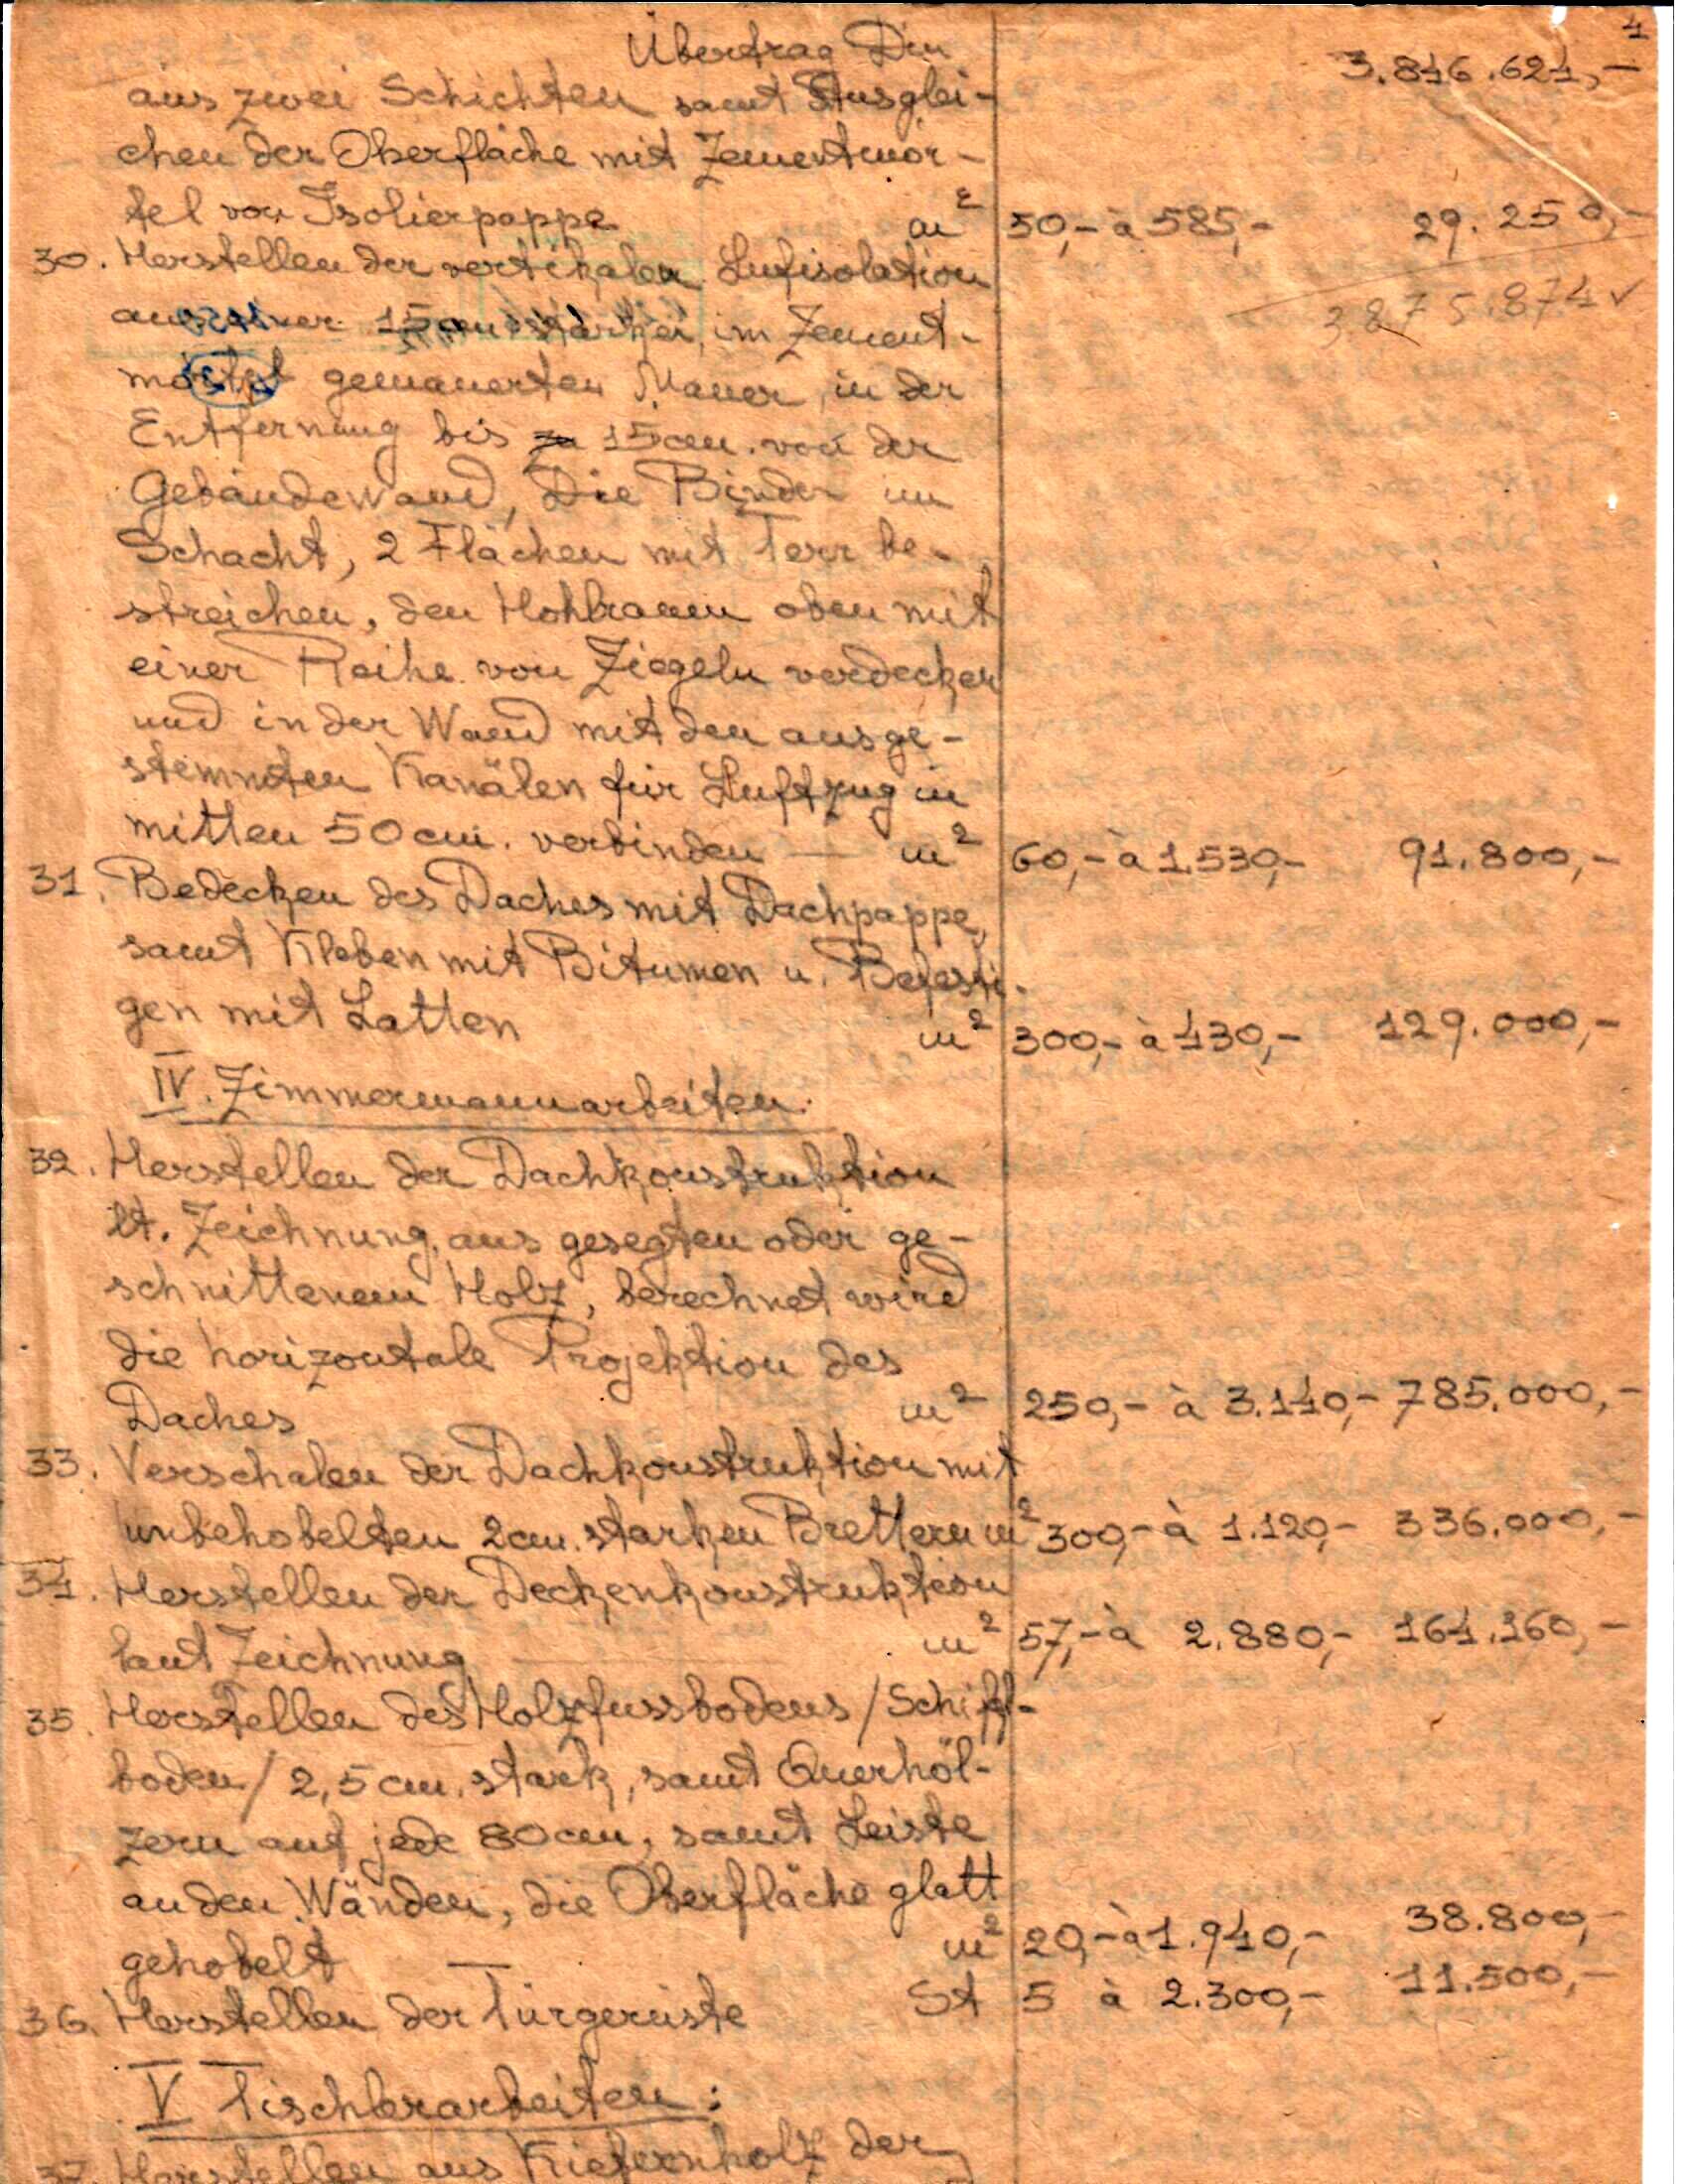 4
Übertrag Din 3.846.624,-
aus zwei Schichten samt Ausglei-
chen der Oberfläche mit Zementmör-
tel von Isolierpappe m² 50,- à 585,- 29.250,-
3875.874 ✓
30. Herstellen der vertikalen Lufisolation
aus einer 15cm starken, im Zement-
mörtel gemauerten Mauer, in der
Entfernung bis 15cm. von der
Gebäudewand, Die Binder im
Schacht, 2 Flächen mit Terr be-
streichen, den Hohlraum oben mit
einer Reihe von Ziegeln verdecken
und in der Wand mit den ausge-
stemmten Kanälen für Luftzug in
mitten 50cm. verbinden — m² 60,- à 1.530,- 91.800,-
31. Bedecken des Daches mit Dachpappe,
samt Kleben mit Bitumen u. Befesti-
gen mit Latten m² 300,- à 430,- 129.000,-
IV. Zimmermannarbeiten:
32. Herstellen der Dachkonstruktion
lt. Zeichnung, aus gesegten oder ge-
schnittenem Holz, berechnet wird
die horizontale Projektion des
Daches m² 250,- à 3.140,- 785.000,-
33. Verschalen der Dachkonstruktion mit
unbehobelten 2cm. starken Brettern m² 300,- à 1.120,- 336.000,-
34. Herstellen der Deckenkonstruktion
laut Zeichnung — m² 57,- à 2.880,- 164.160,-
35. Herstellen des Holzfussbodens /Schiff-
boden/ 2,5cm. stark, samt Querhöl-
zern auf jede 80cm, samt Leiste
an den Wänden, die Oberfläche glatt
gehobelt — m² 20,- à 1.940,- 38.800,-
36. Herstellen der Türgerüste St 5 à 2.300,- 11.500,-
V Tischlerarbeiten:
37. Herstellen aus Kiefernholz der